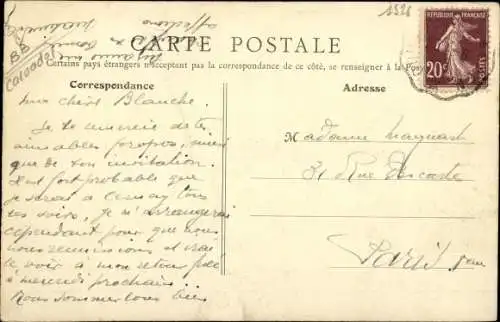 1526
BB
Calvados
CARTE POSTALE
Certains pays étrangers n'acceptant pas la correspondance de ce côté, se renseigner à la Pos
RÉPUBLIQUE FRANÇAISE
20c
POSTES
Correspondance
Adresse
ma chère Blanche.
Je te remercie de tes
aimables propos, ainsi
que de ton invitation.
Il est fort probable que
je serai à tous
ces soirs, je m'arrangerai
cependant pour que nous
nous réunissions et irai
te voir à mon retour
à mercredi prochain
Nous sommes tous bien
Madame
31 Rue Descartes
Paris 5em